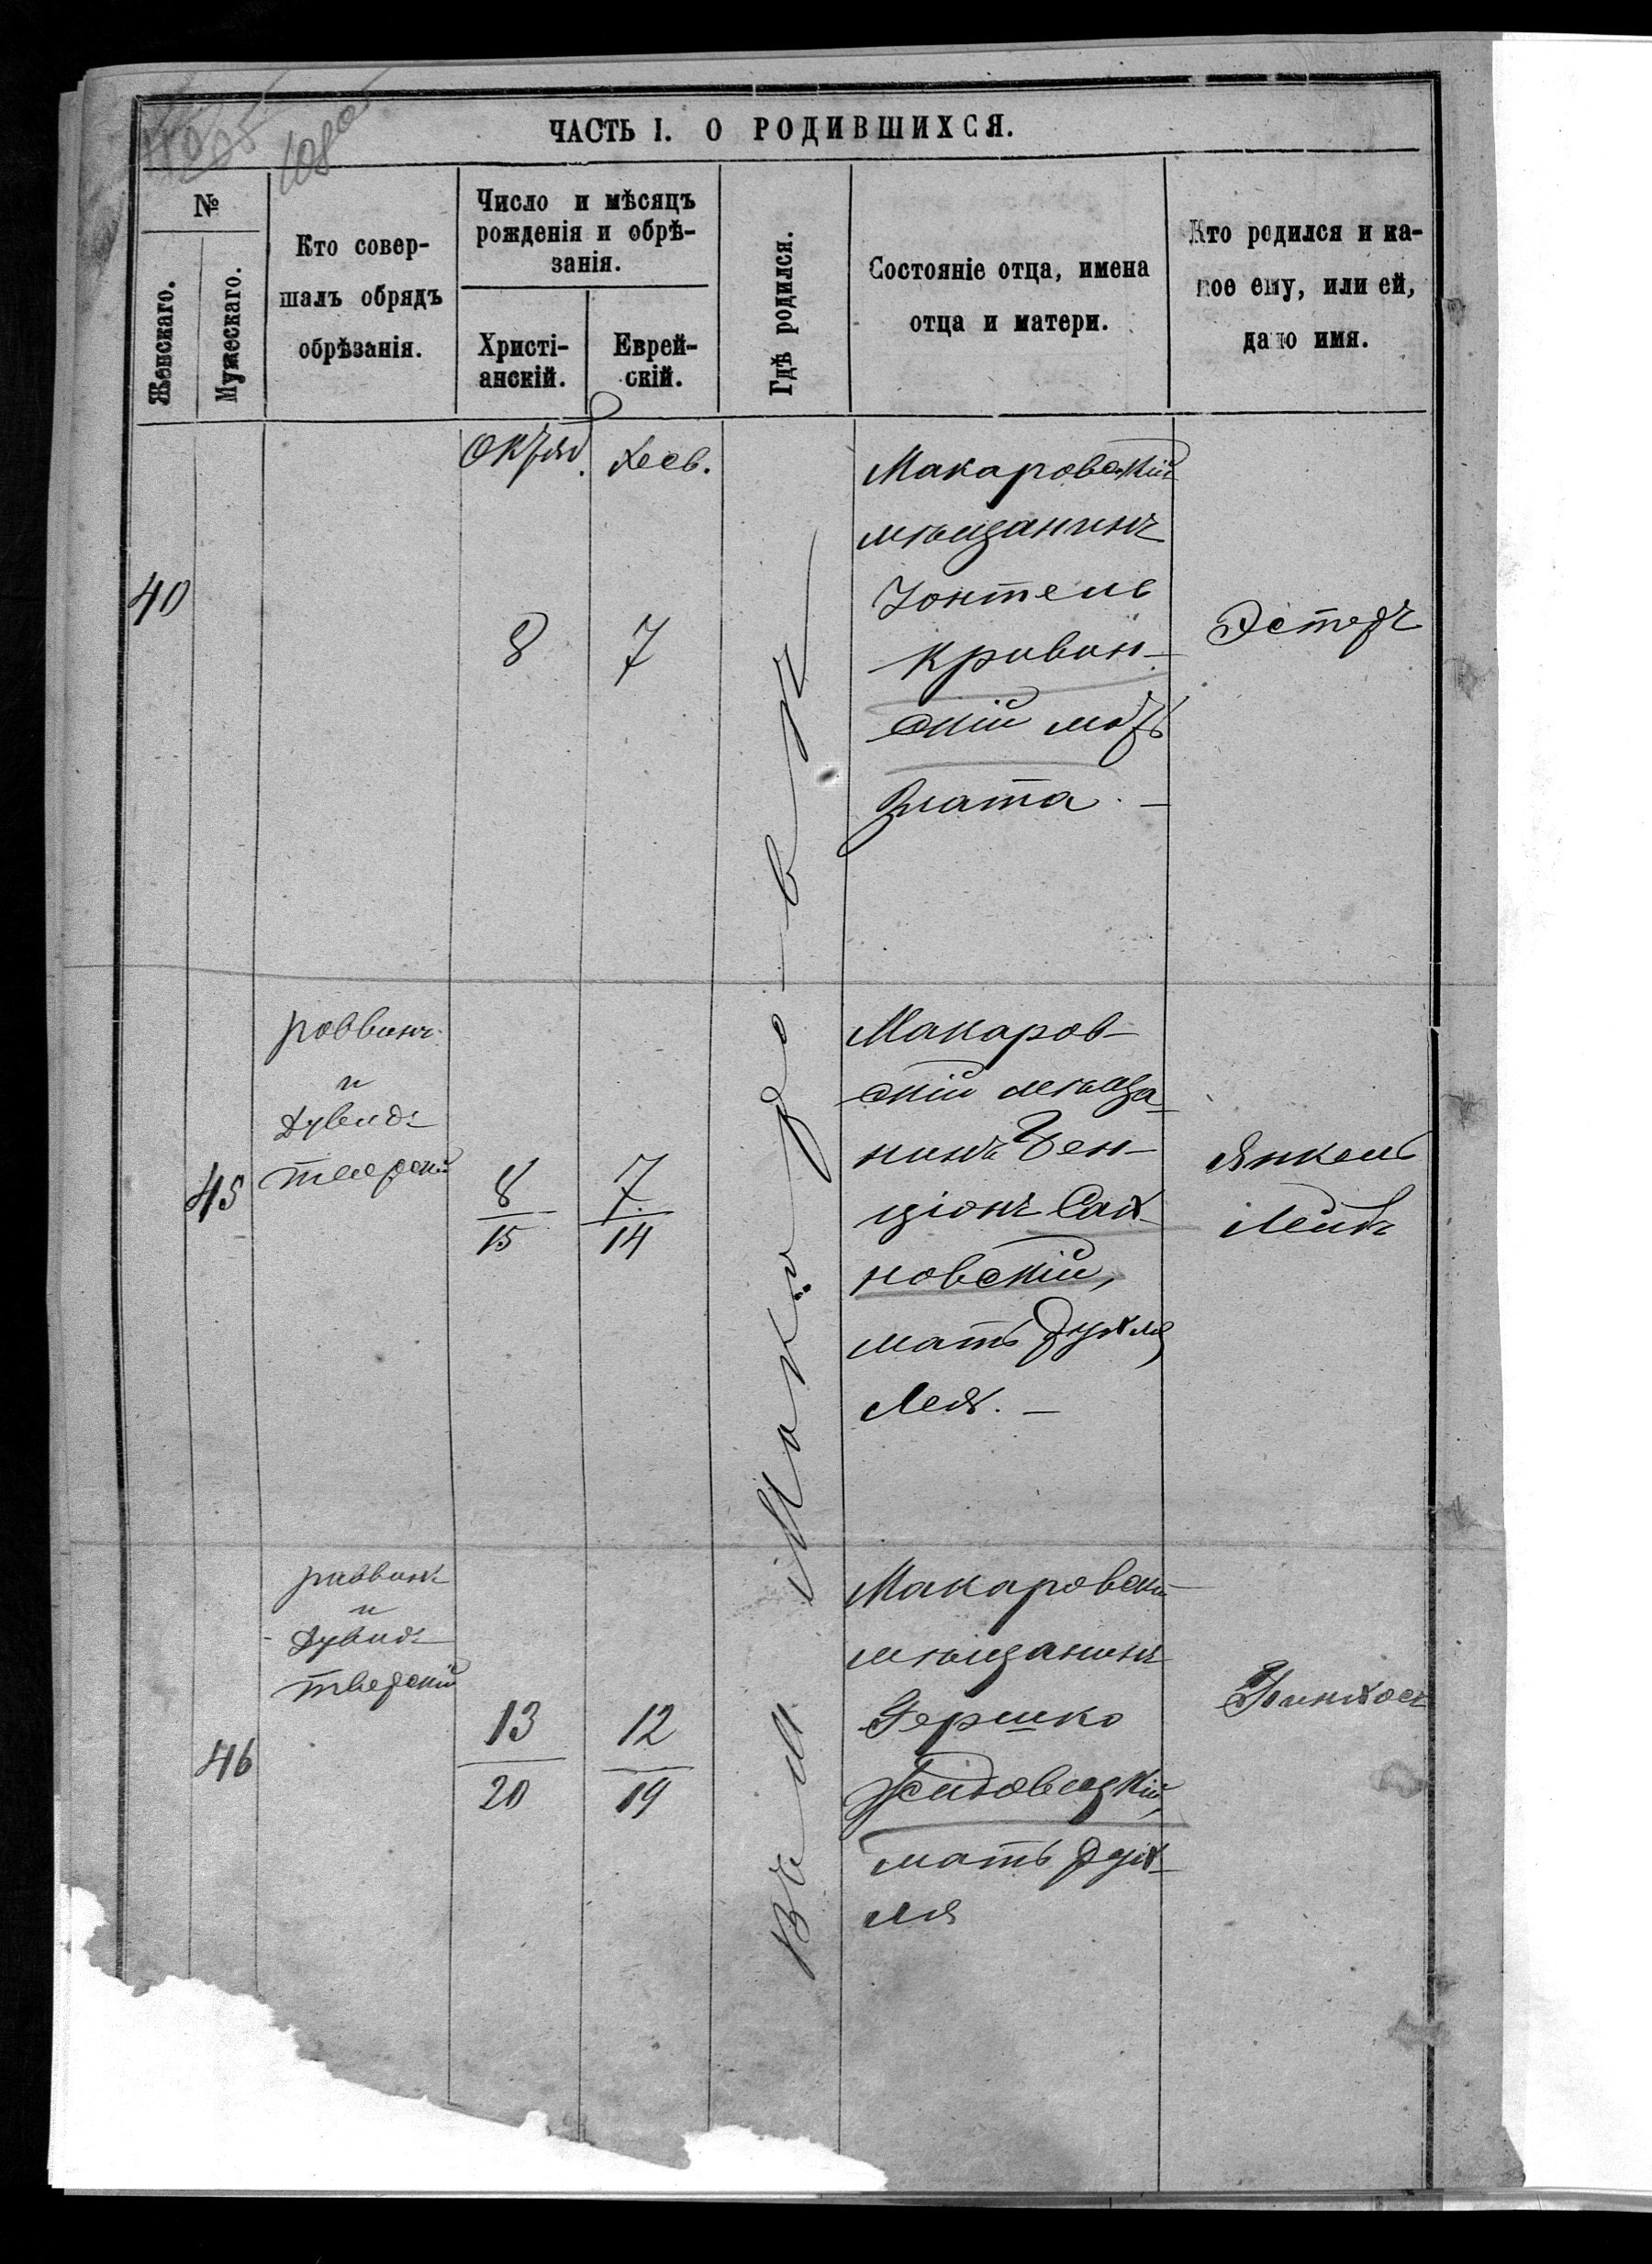 108 об
ЧАСТЬ I. О РОДИВШИХСЯ.
№
Женскаго.
Мужескаго.
Кто совер-
шалъ обрядъ
обрѣзанія.
Число и мѣсяцъ
рожденія и обрѣ-
занія.
Христі-
анскій.
Еврей-
скій.
Гдѣ родился.
Состояніе отца, имена
отца и матери.
Кто родился и ка-
кое ему, или ей,
дано имя.
Октяб.
Хесв.
Въ м Макарово-
40
8
7
Макаровскій
мѣщанинъ
Іонтель
Кривон-
скій мать
Злата. —
Эстеръ
45
раввинъ
и
Дувидъ
Тверскій
8
15
7
14
Макаров-
скій мѣща-
нинъ Бен-
ціонъ Сах-
новскій,
мать Рухля
Лея. —
Янкель
Лейбъ
46
раввинъ
и
Дувидъ
Тверскій
13
20
12
19
Макаровскій
мѣщанинъ
Гершко
мать Рух-
ля
Пинхосъ